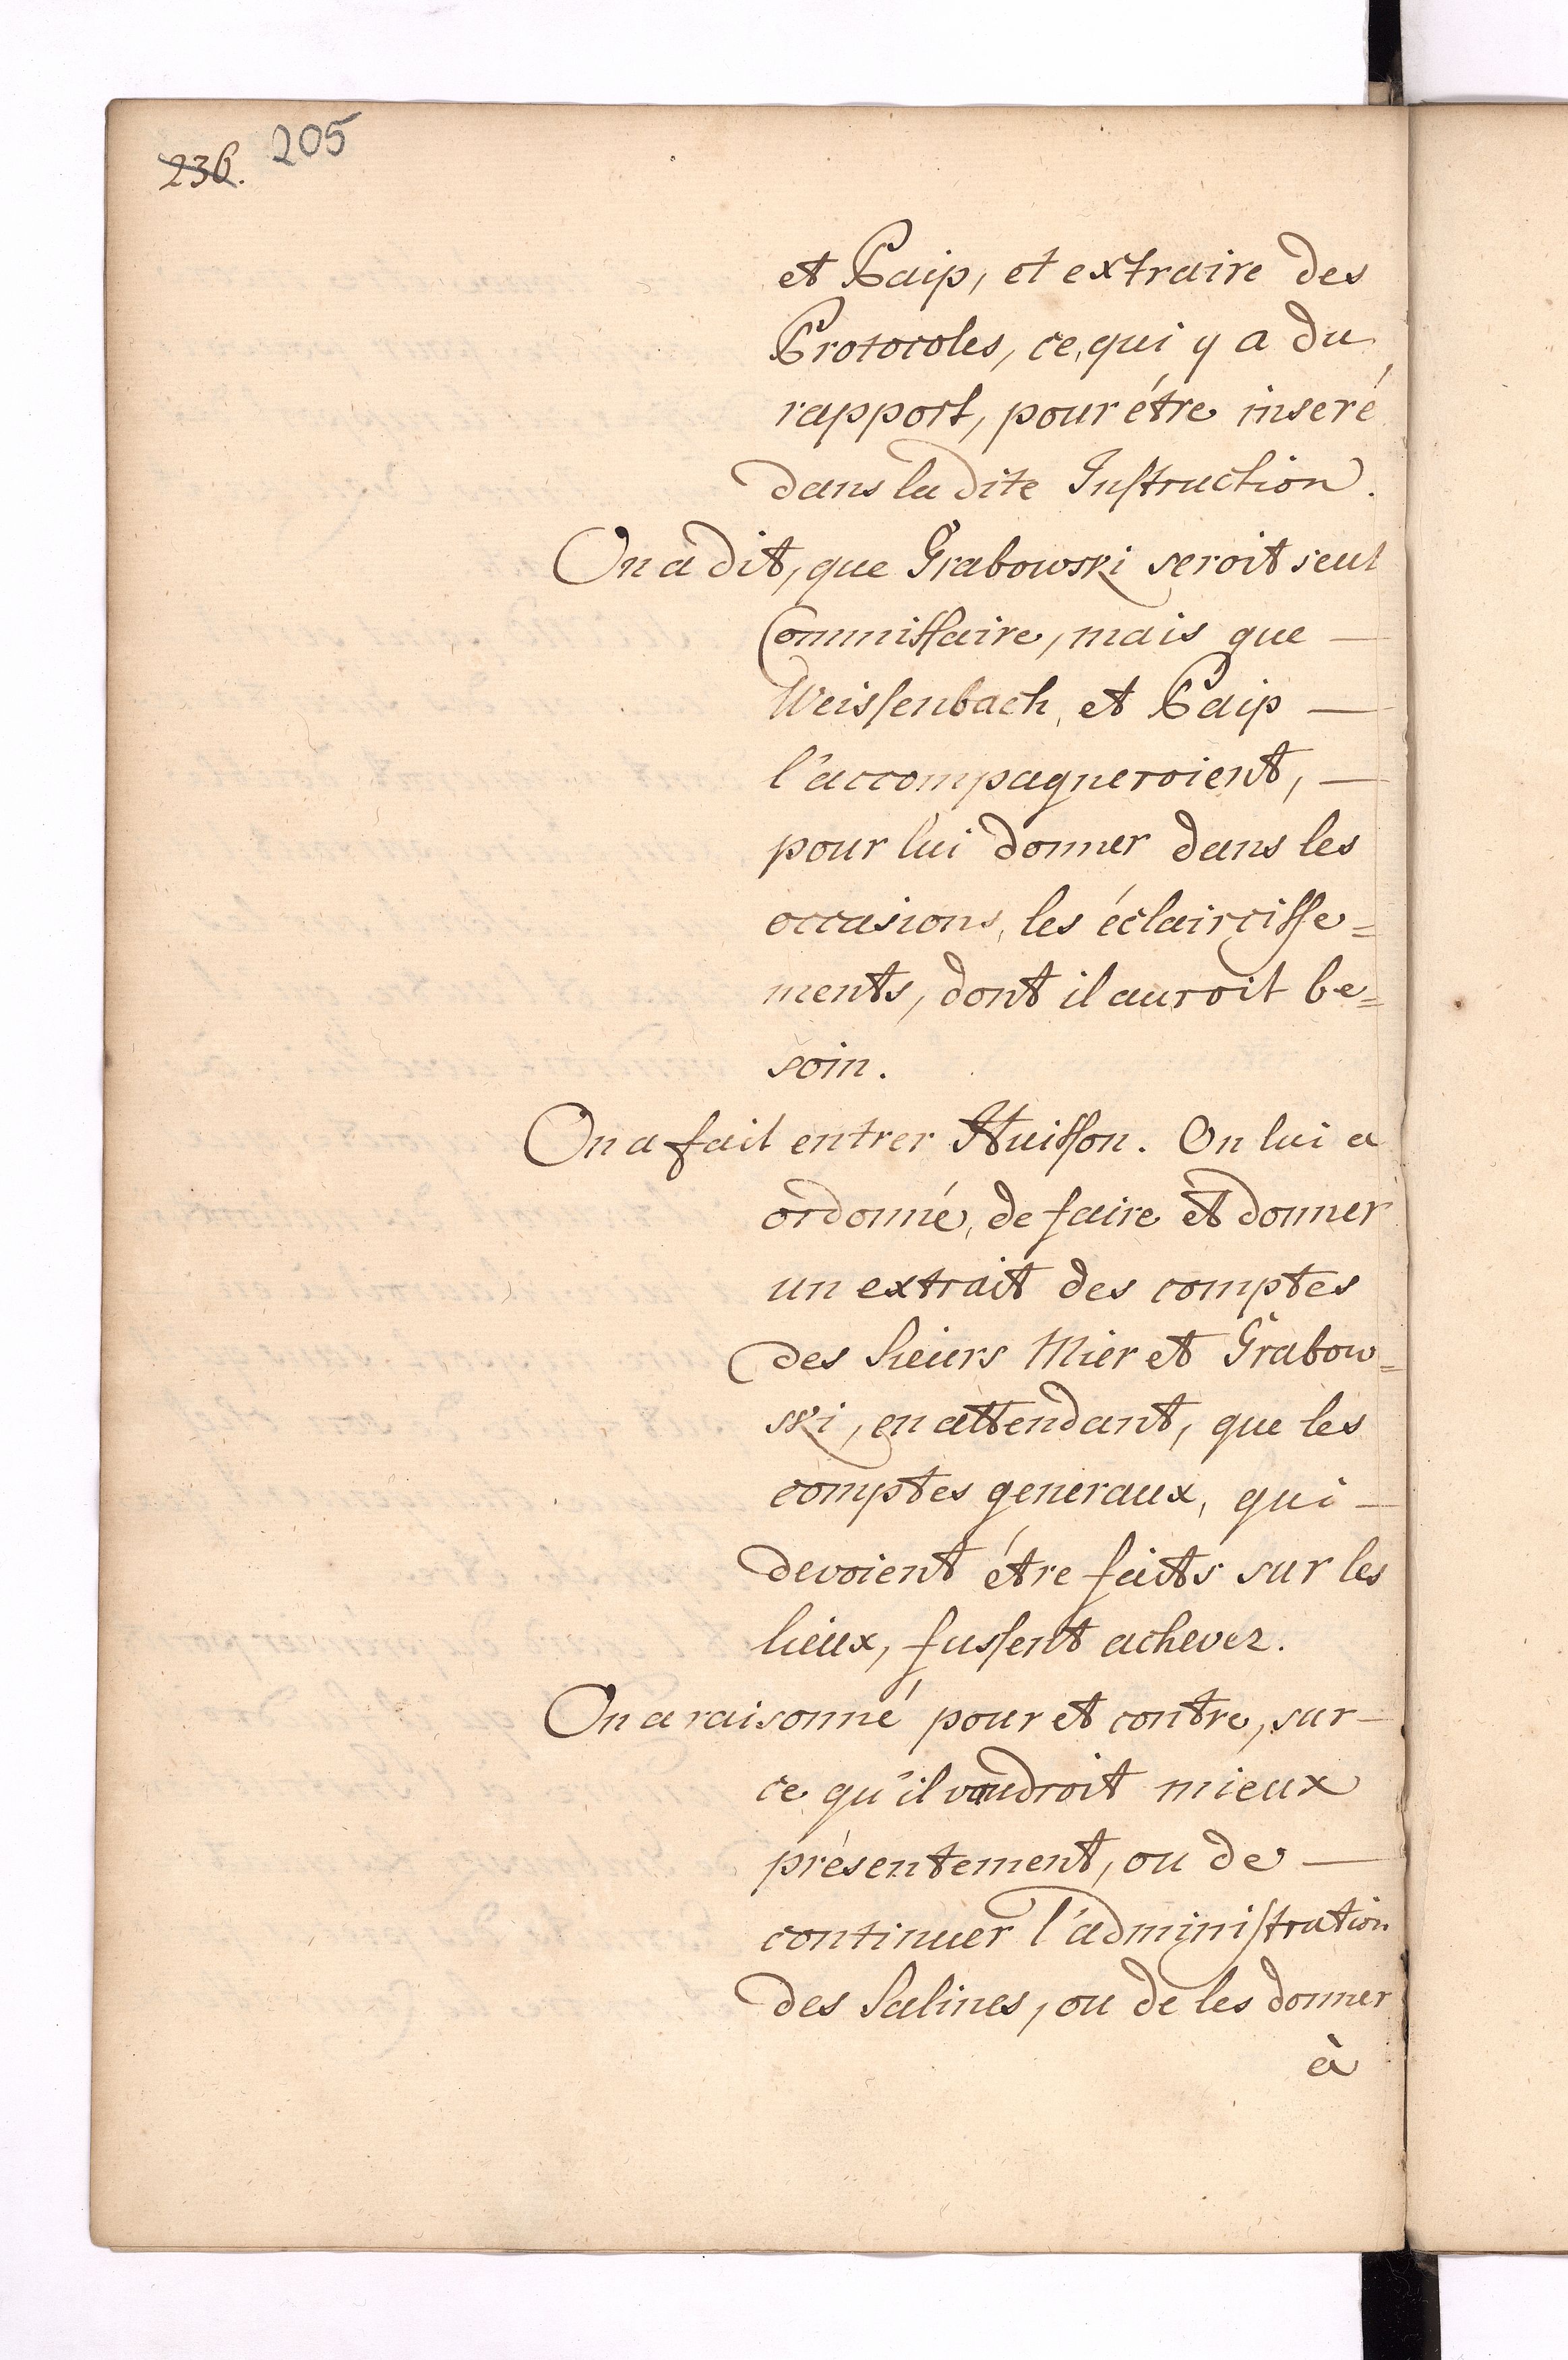 236. 205
et Paip, et extraire des
Protocoles, ce, qui y a du
rapport, pour étre inseré
dans la dite Instruction.
On a dit, que Grabowski seroit seul
Commissaire, mais que —
Weissenbach, et Paip —
l'accompagneroient, —
pour lui donner dans les
occasions, les éclairçisse=
ments, dont il auroit be=
soin.
On a fait entrer Huisson. On lui a
ordonné, de faire et donner
un extrait des comptes
des Sieurs Mier et Grabow=
ski, en attendant, que les
comptes generaux, qui —
devoient étre faits sur les
lieux, fussent achevez.
On a raisonné pour et contre, sur —
ce qu'il vaudroit mieux
présentement, ou de —
continuer l'administration
des Salines, ou de les donner
à